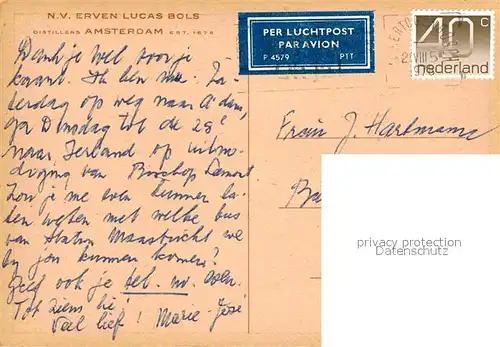 N.V. ERVEN LUCAS BOLS
DISTILLERS AMSTERDAM EST. 1575
PER LUCHTPOST
PAR AVION
P 4579 PTT
40 c
nederland
Dank je wel voor je
kaart. Ik ben nu Za-
terdag op weg naar A'dam,
ga Dinsdag tot de 25e
naar Ierland op uitno-
diging van Bisschop Lamont.
Zou je me even kunnen la-
ten weten met welke bus
van station Maastricht we
bij jou kunnen komen?
Geef ook je tel. no. even.
Tot ziens hè!
Veel liefs! Marie-José
Frau J. Hartmann
Ba
privacy protection
Datenschutz